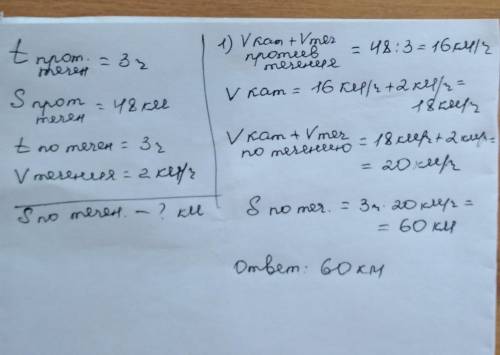 t прот. течен = 3ч
S прот течен = 48 км
t по течен = 3ч
V течения = 2 км/ч
S по течен. – ? км
1) V кат + V теч против течения = 48 : 3 = 16 км/ч
V кат = 16 км/ч + 2 км/ч =
18 км/ч
V кат + V теч по течению = 18 км/ч + 2 км/ч =
= 20 км/ч
S по теч. = 3ч · 20 км/ч =
= 60 км
Ответ: 60 км